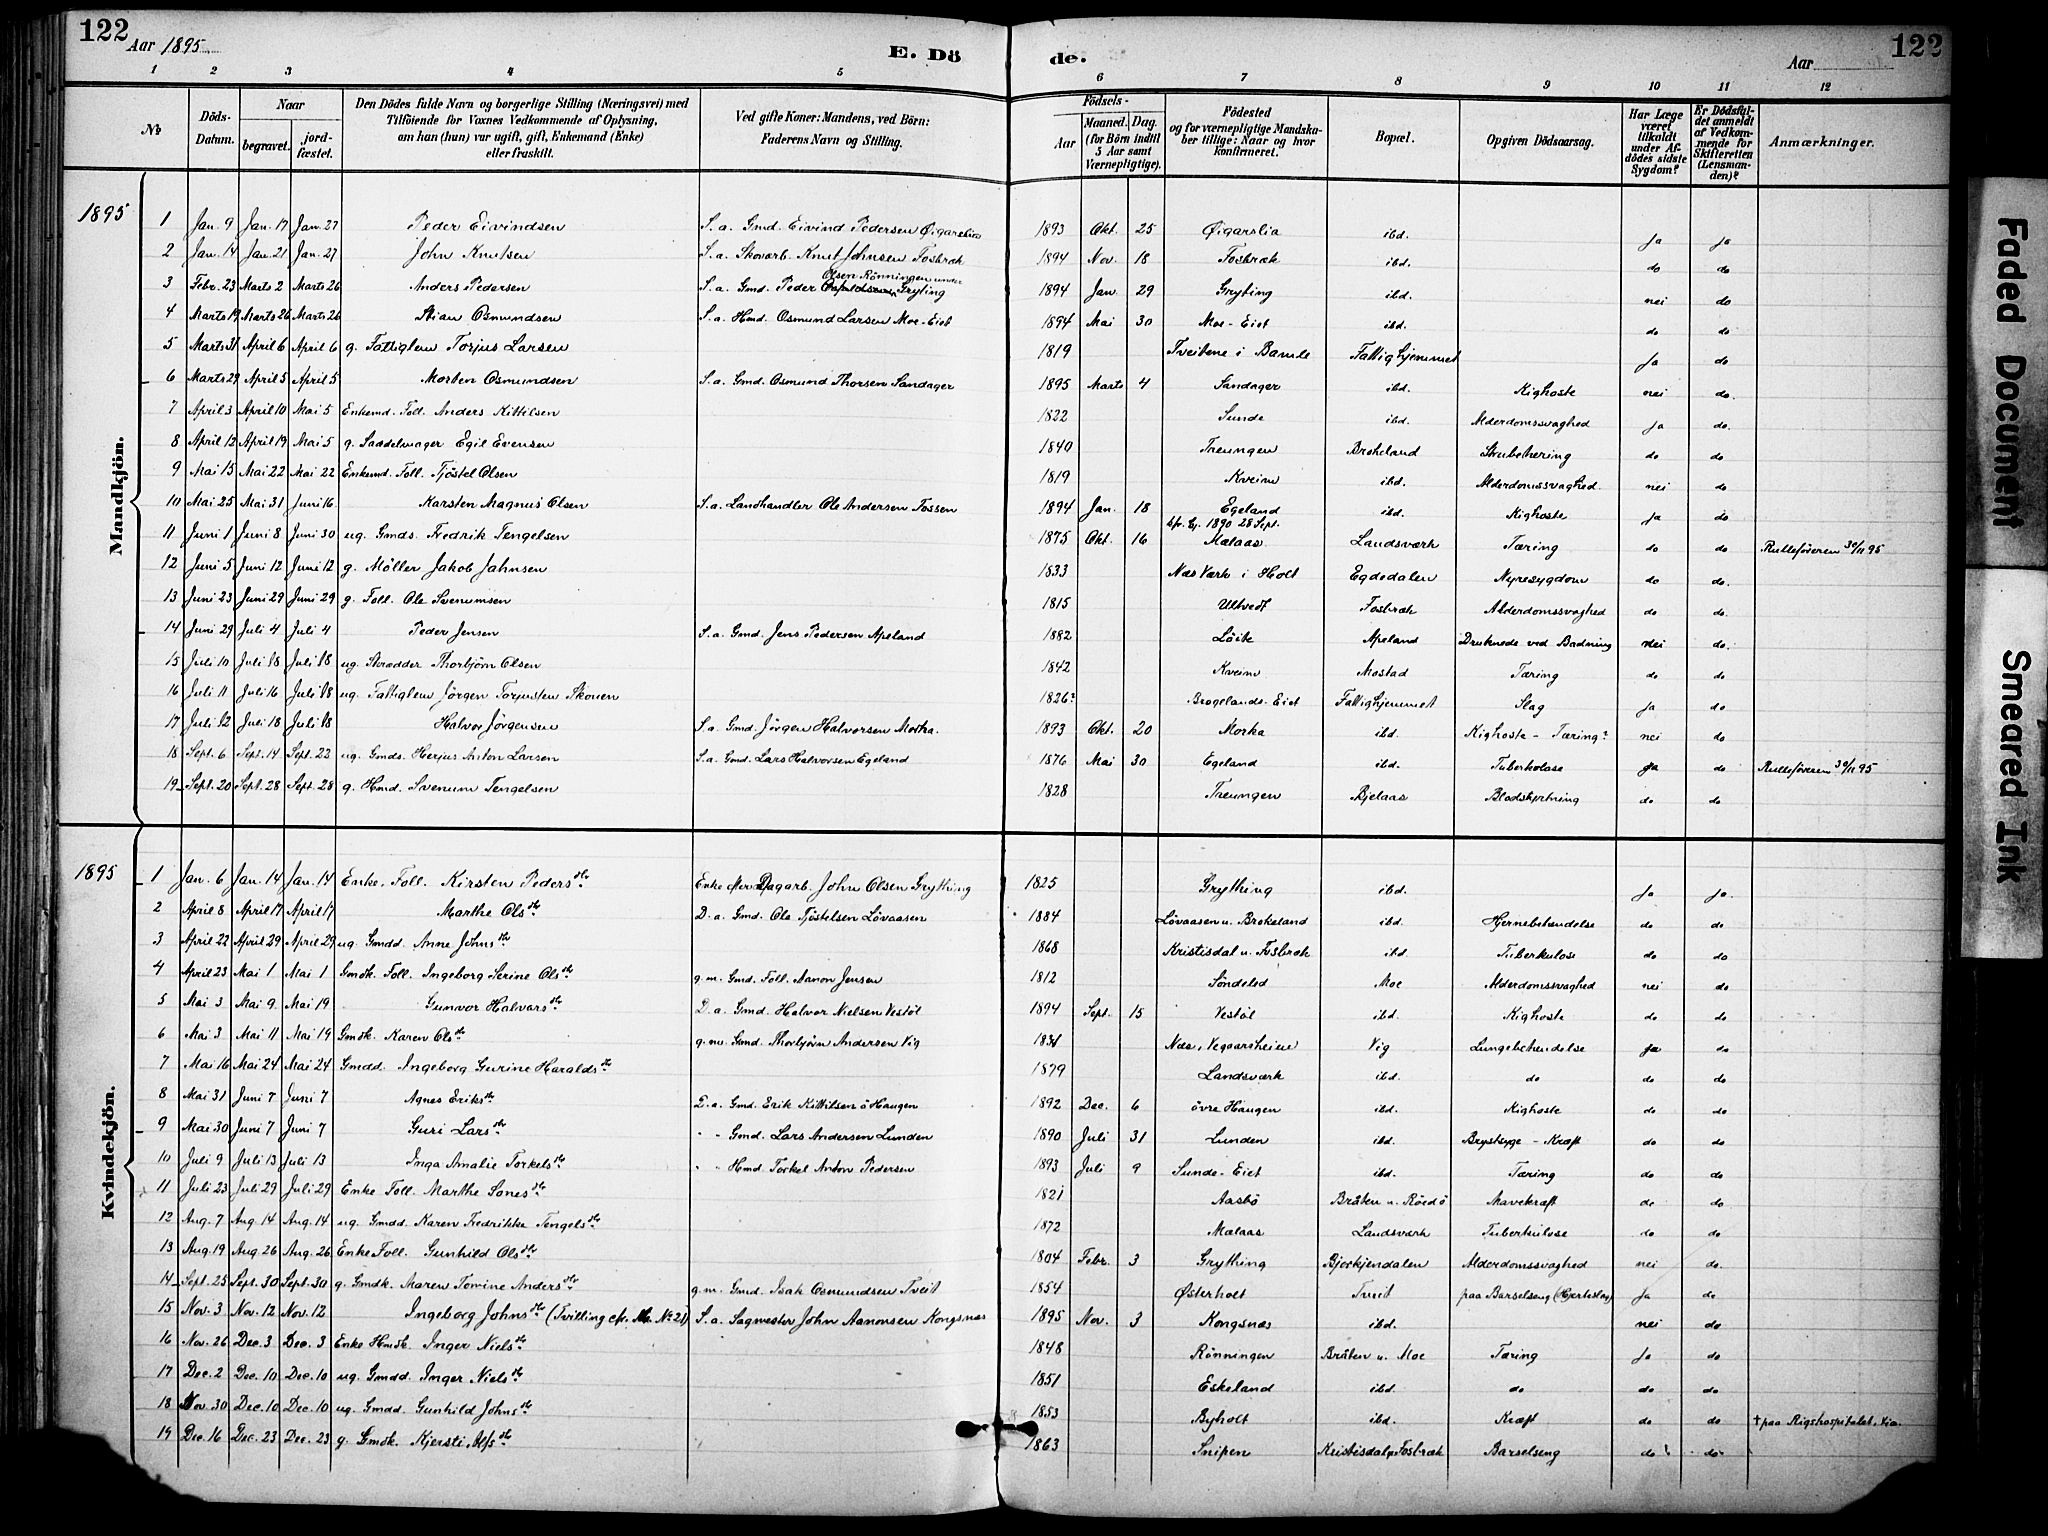 122
Aar 1895.
E. Dö
de.
Aar
122
1 2 3 4 5 6 7 8 9 10 11 12
No
Döds-Datum.
Naar
begravet.
jord-fæstet.
Den Dödes fulde Navn og borgerlige Stilling (Næringsvei) med
Tilföiende for Voxnes Vedkommende af Oplysning,
om han (hun) var ugift, gift, Enkemand (Enke)
eller fraskilt.
Ved gifte Koner: Mandens, ved Börn:
Faderens Navn og Stilling.
Födsels-
Aar
Maaned. Dag.
(for Börn indtil
5 Aar samt
Værnepligtige).
Födested
og for værnepligtige Mandska-
ber tillige: Naar og hvor
konfirmeret.
Bopæl.
Opgiven Dödsaarsag.
Har Læge
været
tilkaldt
under Af-
dödes sidste
Sygdom?
Er Dödsfal-
det anmeldt
af Vedkom-
mende for
Skifteretten
(Lensman-
den)?
Anmærkninger.
1895
Mandkjön.
1 Jan. 9 Jan. 17 Jan. 27 Peder Eivindsen S. a. Gmd. Eivind Pedersen Øigarslia 1893 Okt. 25 Øigarslia ibd. Ja ja
2 Jan. 14 Jan. 21 Jan. 27 John Knutsen S. a. Skovarb. Knut Johnsen Fosbræk 1894 Nov. 18 Fosbræk ibd. do do
3 Febr. 23 Marts 2 Marts 26 Anders Pedersen S. a. Gmd. Peder Olsen Rönningen under Gryting 1894 Jan. 29 Gryting ibd. nei do
4 Marts 19 Marts 26 Marts 26 Stian Osmundsen S. a. Hmd. Osmund Larsen Moe-Eiet 1894 Mai 30 Moe-Eiet ibd. do do
5 Marts 31 April 6 April 6 g. Fattiglem Torjus Larsen 1819 Tveitene i Bamle Fattighjemmet Ja do
6 Marts 29 April 5 April 5 Morten Osmundsen S. a. Gmd. Osmund Thorsen Sandager 1895 Marts 4 Sandager ibd. Kighoste nei do.
7 April 3 April 10 Mai 5 Enkemd. Foll. Anders Kittilsen 1822 Sunde ibd. Alderdomssvaghed ja do.
8 April 12 April 19 Mai 5 g. Saadelmager Egil Evensen 1840 Treungen Brokeland Strubetæring do do
9 Mai 15 Mai 22 Mai 22 Enkemd. Foll. Tjöstel Olsen 1819 Kveim ibd. Alderdomssvaghed. nei do
10 Mai 25 Mai 31 Juni 16 Karsten Magnus Olsen S. a. Landhandler Ole Andersen Fossen 1894 Jan. 18 Egeland ibd. Kighoste ja do
11 Juni 1 Juni 8 Juni 30 ug. Gmds. Fredrik Tengelsen 1875 Okt. 16 kfr. Gj. 1890 28 Sept. Mælaas Landsværk Tæring do do Rulleföreren 30/11 95
12 Juni 5 Juni 12 Juni 12 g. Möller Jakob Jahnsen 1833 Næs Værk i Holt Egdedalen Nyresygdom do do.
13 Juni 23 Juni 29 Juni 29 g. Foll. Ole Svenumsen 1815 Ultvedt Fosbræk Alderdomssvaghed do do.
14 Juni 29 Juli 4 Juli 4 Peder Jensen S. a. Gmd. Jens Pedersen Apeland 1882 Löite Apeland Druknede ved Badning nei do.
15 Juli 10 Juli 18 Juli 18 ug. Skrædder Thorbjörn Olsen 1842 Kveim Mostad Tæring do do
16 Juli 11 Juli 16 Juli 18 ug. Fattiglem Jörgen Torjussen Skouen 1826? Brogelands-Eiet Fattighjemmet Slag ja do
17 Juli 12 Juli 18 Juli 18 Halvor Jörgensen S. a. Gmd. Jörgen Halvorsen Morka. 1893 Okt. 20 Morka ibd. Kighoste - Tæring? nei do
18 Sept. 6 Sept. 14 Sept. 22 ug. Gmds. Herjus Anton Larsen S. a. Gmd. Lars Halvorsen Egeland 1876 Mai 30 Egeland ibd. Tuberkolose ja do Rulleföreren 30/11 95
19 Sept. 20 Sept. 28 Sept. 28 g. Hmd. Svenum Tengelsen 1828 Treungen Bjelaas Blodstyrtning do do
1895
Kvindekjön.
1 Jan. 6 Jan. 14 Jan. 14 Enke. Foll. Kirsten Pedersdtr. Enke efter Dagarb. John Olsen Grything 1825 Grything ibd. Ja ja.
2 April 8 April 17 April 17 Marthe Olsdtr. D. a. Gmd. Ole Tjöstelsen Lövaasen 1884 Lövaasen u. Brokeland ibd. Hjernebetændelse do do
3 April 22 April 29 April 29 ug. Gmdd. Anne Johnsdtr 1868 Kristisdal u. Fosbræk ibd. Tuberkulose do do
4 April 23 Mai 1 Mai 1 Gmdk. Foll. Ingeborg Serine Olsdtr. g. m. Gmd. Foll. Aanon Jensen 1812 Söndeled Moe Alderdomssvaghed nei do
5 Mai 3 Mai 9 Mai 19 Gunvor Halvorsdtr. D. a. Gmd. Halvor Nielsen Vestöl 1894 Sept. 15 Vestöl ibd. Kighoste do do
6 Mai 3 Mai 11 Mai 19 Gmdk. Karen Olsdtr g. m. Gmd. Thorbjörn Andersen Vig 1831 Næs, Vegaarsheien Vig Lungebetændelse ja do
7 Mai 16 Mai 24 Mai 24 Gmdd. Ingeborg Gurine Haraldsdtr. 1879 Landsværk ibd. do do do
8 Mai 31 Juni 7 Juni 7 Agnes Eriksdtr. D. a. Gmd. Erik Kittilsen ö Haugen 1892 Dec. 6 övre Haugen ibd. Kighoste do do
9 Mai 30 Juni 7 Juni 7 Guri Larsdtr " " Gmd. Lars Andersen Lunden 1890 Juli 31 Lunden ibd. Brystsyge - Kræft do do
10 Juli 9 Juli 13 Juli 13 Inga Amalie Torkelsdtr " " Hmd Torkel Anton Pedersen 1893 Juli 9 Sunde-Eiet ibd. Tæring do do
11 Juli 23 Juli 29 Juli 29 Enke Foll. Marthe Sonesdtr. 1821 Aasbö Bråten u. Röedö Mavekræft do do
12 Aug. 7 Aug. 14 Aug. 14 ug. Gmdd. Karen Fredrikke Tengelsdtr. 1872 Mælaas Landsværk Tuberkulose do do
13 Aug. 19 Aug. 26 Aug. 26 Enke Foll. Gunhild Olsdtr. 1804 Febr. 3 Grything Bjorkjendalen Alderdomssvaghed nei do.
14 Sept. 25 Sept. 30 Sept. 30 g. Gmdk. Maren Tomine Andersdtr. g. m. Gmd. Isak Osmundsen Tveit 1854 Østerholt Tveit paa Barselseng (Hjerteslag) ja do
15 Nov. 3 Nov. 12 Nov. 12 Ingeborg Johnsdtr. (Tvilling cfr. No. 21) S. a. Sagmester John Aanonsen Kongsnæs 1895 Nov. 3 Kongsnæs ibd. nei do
16 Nov. 26 Dec. 3 Dec. 3 Enke Hmdk. Inger Nielsdtr. 1848 Rönningen Bråten u. Moe Tæring ja do
17 Dec. 2 Dec. 10 Dec. 10 ug. Gmdd. Inger Nielsdtr 1851 Eskeland ibd. do do do
18 Nov. 30 Dec. 10 Dec. 10 ug. Gmdd. Gunhild Johnsdtr 1853 Byholt ibd. Kræft do do † paa Rigshospitalet, Kra.
19 Dec. 16 Dec. 23 Dec. 23 g. Gmdk. Kjersti Alfsdtr. 1863 Snipen Kristisdal, Fosbræk Barselseng do do
Faded Document
Smeared Ink